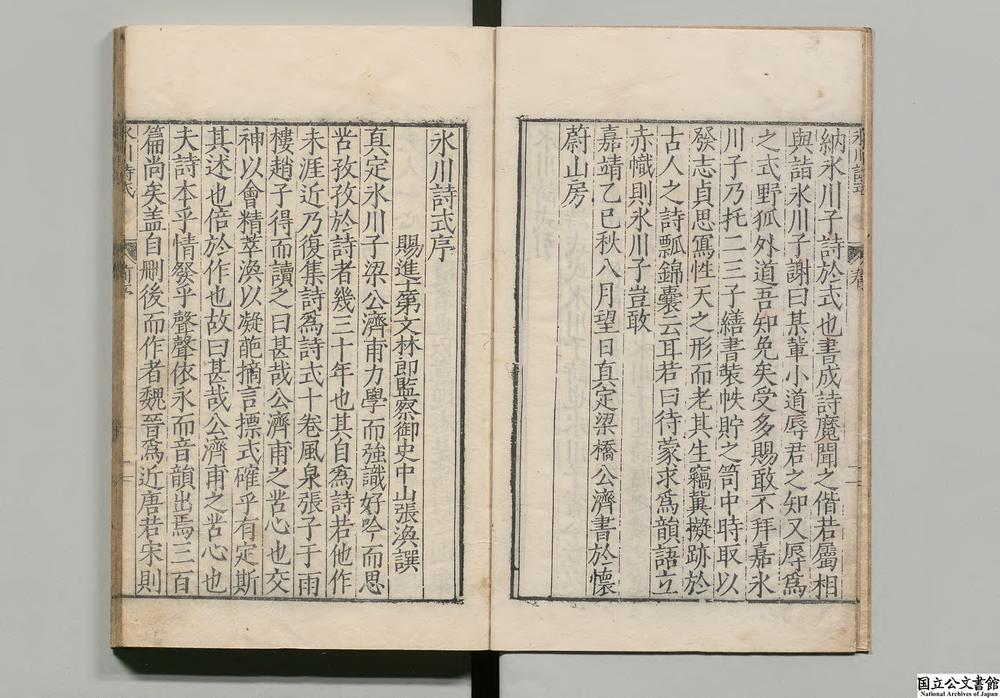 納氷川子詩於式也書成詩魔聞之偕若屬相
與詣氷川子謝曰某軰小道辱君之知又辱爲
之式野狐外道吾知免矣受多賜敢不拜嘉氷
川子乃托二三子繕書装帙貯之笥中時取以
發志貞思寫性天之形而老其生竊冀擬跡於
古人之詩瓢錦囊云耳若曰待蒙求爲韻語立
赤幟則氷川子豈敢
嘉靖乙巳秋八月望日真定梁橋公濟書於懷
蔚山房
氷川詩式序
賜進士第文林郎監察御史中山張渙譔
真定氷川子梁公濟甫力學而強識好吟而思
苦孜孜於詩者幾三十年也其自爲詩若他作
未涯近乃復集詩爲詩式十卷風泉張子于雨
樓趙子得而讀之曰甚哉公濟甫之苦心也交
神以會精萃渙以凝葩摘言摽式確乎有定斯
其述也倍於作也故曰甚哉公濟甫之苦心也
夫詩本乎情發乎聲聲依永而音韻出焉三百
篇尚矣盖自刪後而作者魏晉爲近唐若宋則
氷川詩式